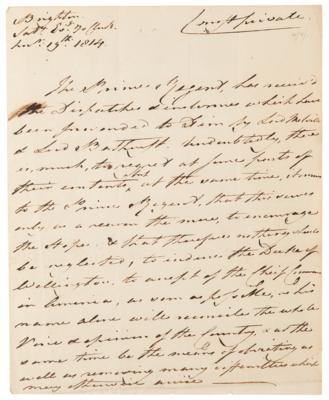 Brighton
Satdy Eveg 7 o'clock
Novr. 19th. 1814.
Most private.
The Prince Regent, has receiv'd
the Dispatches & enclosures which have
been forwarded to Him by Lord Melville
& Lord Bathurst. Undoubtedly, there
is, much, to regret at some parts of
their contents, at the same time, it seems
to the Prince Regent, that this serves
only, as a reason the more, to encourage
the Hope & that therefore nothing should
be neglected, to induce the Duke of
Wellington, to accept of the Chief command
in America, as soon as possible, his
name alone will reconcile the whole
Voice & opinion of the Country, & at the
same time be the means of
well as removing many difficulties which
may otherwise arise